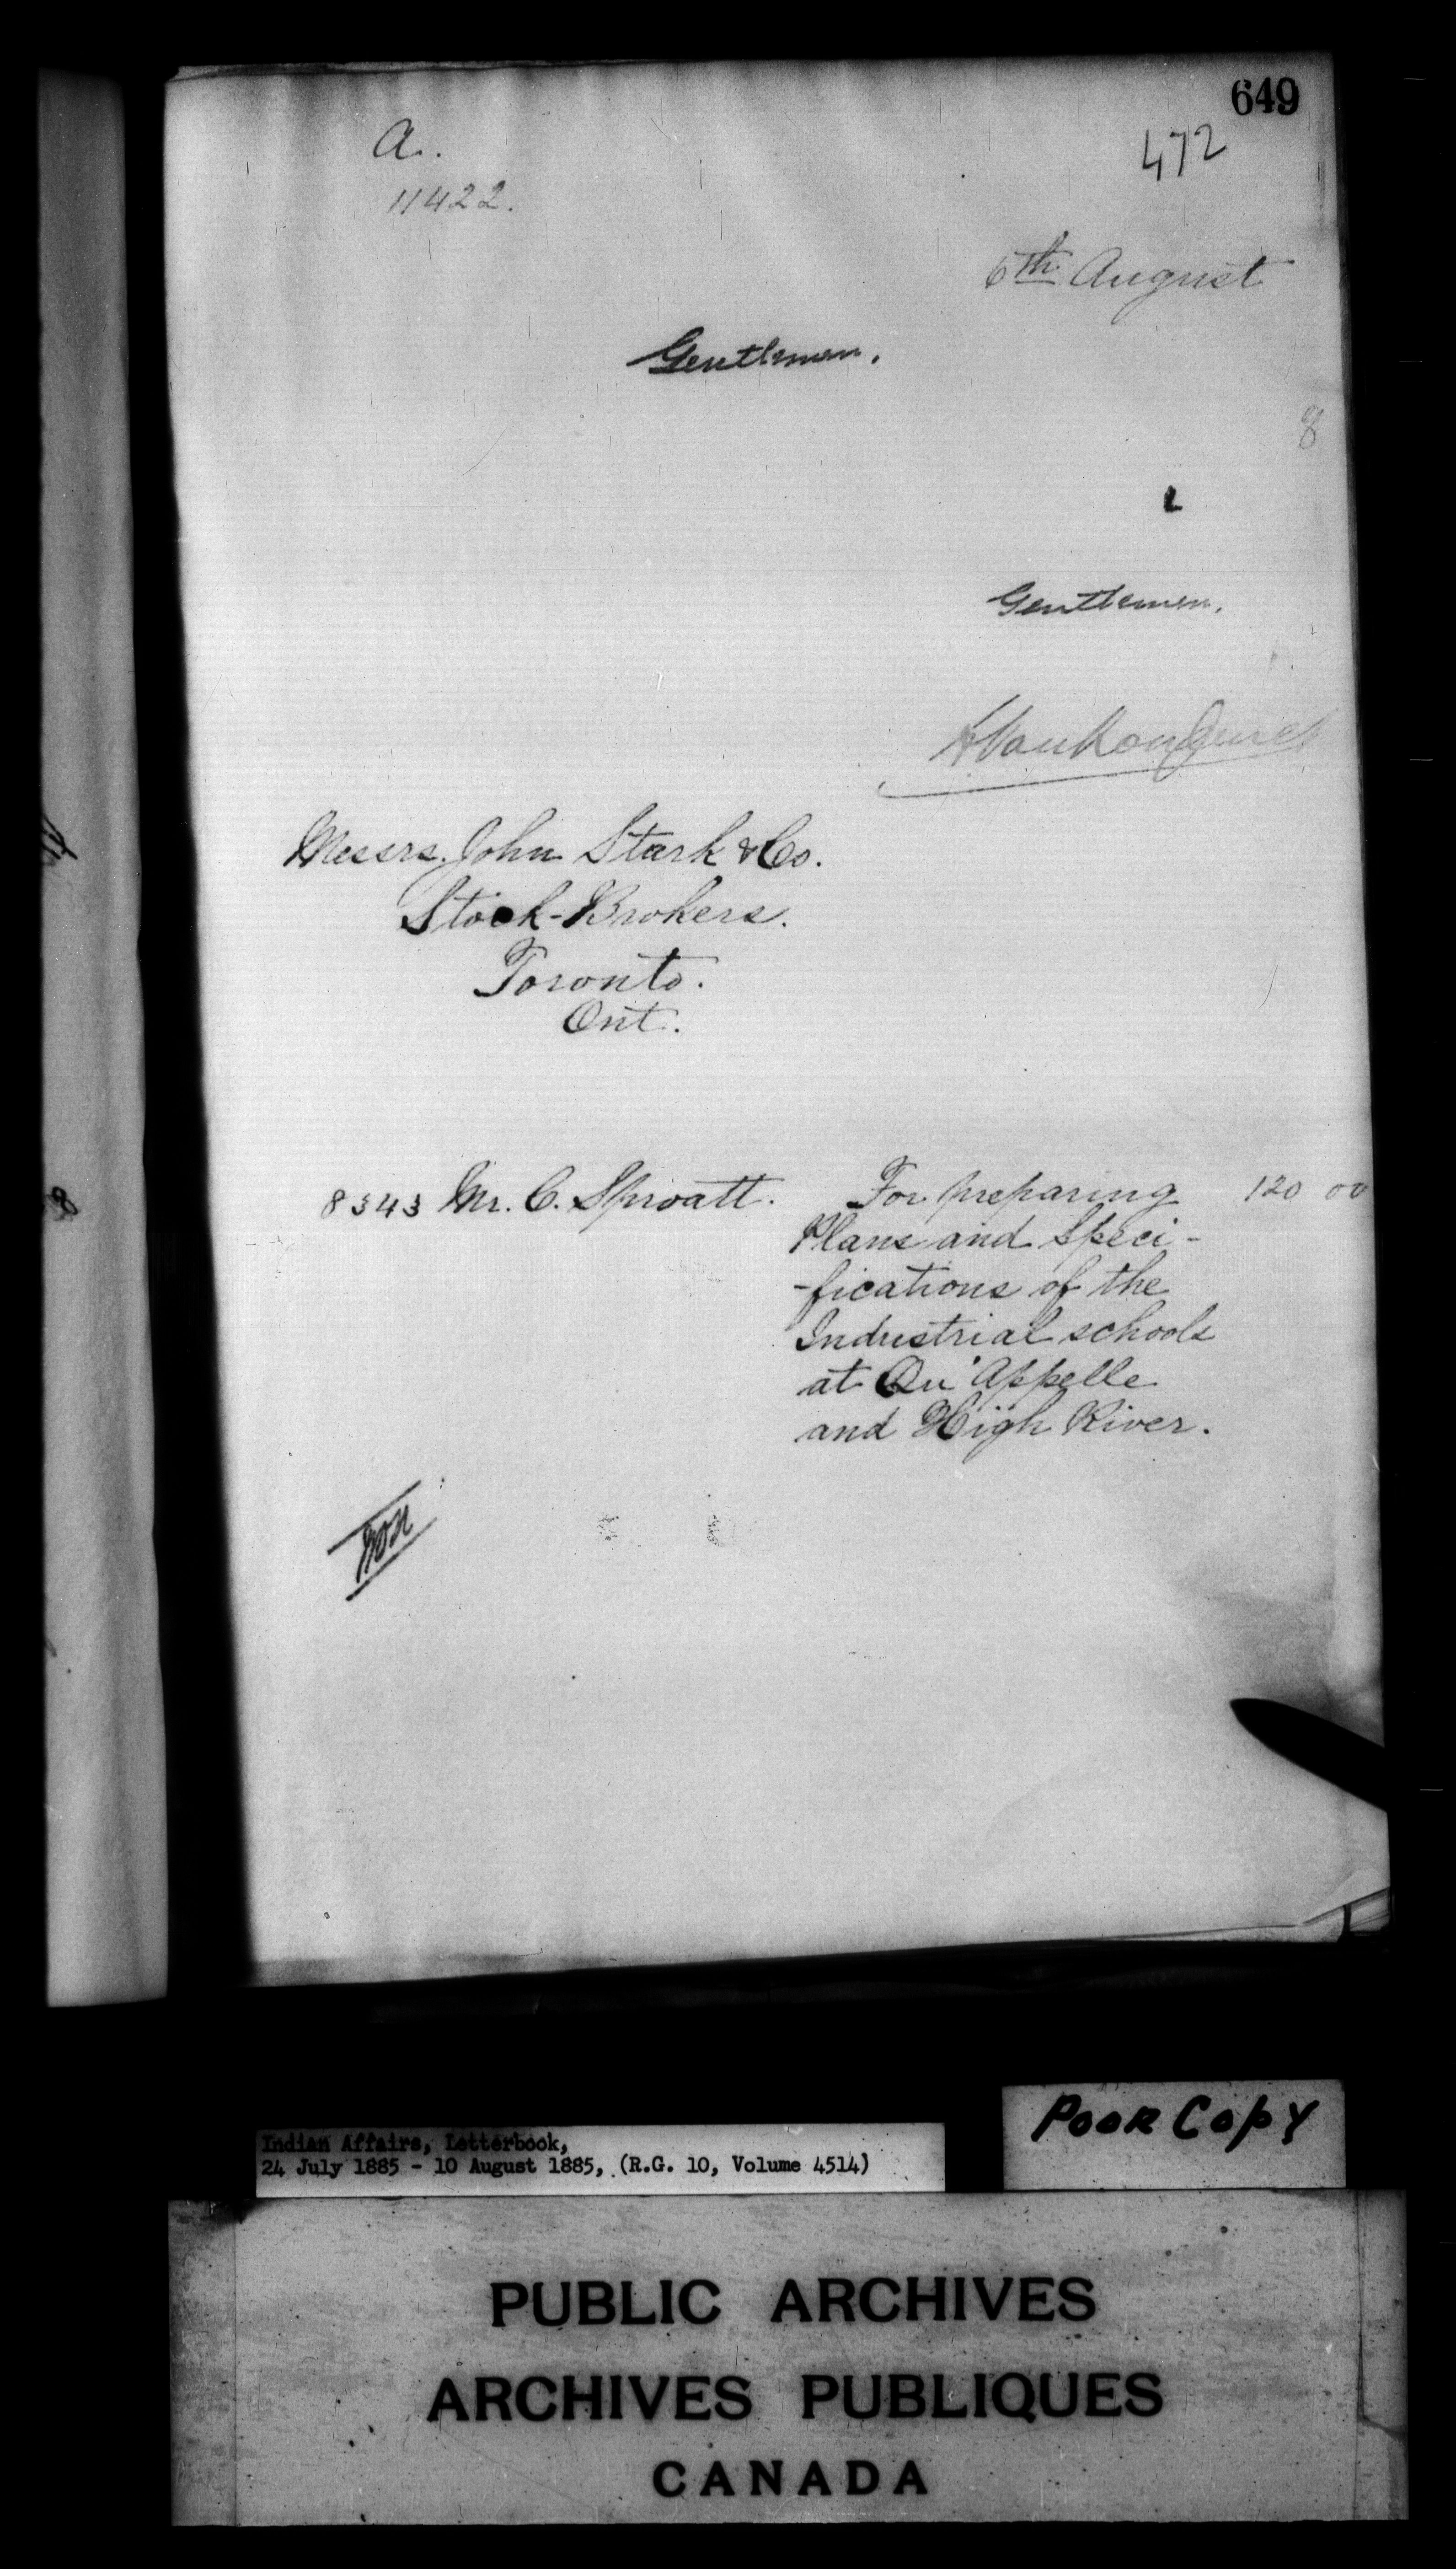 649
A.
472
11422.
6th August
Gentlemen.
8
Gentlemen.
L VanKoughnet
Messrs. John Stark & Co.
Stock-Brokers.
Toronto.
Ont.
8343 Mr. C. Sproatt. For preparing 120 00
Plans and Speci-
-fications of the
Industrial schools
at Qu'Appelle
and High River.
Indian Affairs, Letterbook,
24 July 1885 - 10 August 1885, (R.G. 10, Volume 4514)
POOR COPY
PUBLIC ARCHIVES
ARCHIVES PUBLIQUES
CANADA